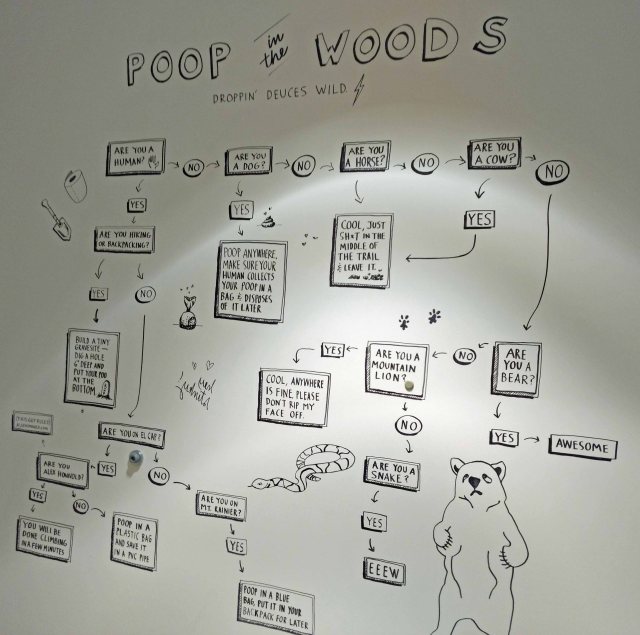 POOP in the WOODS
DROPPIN' DEUCES WILD.
ARE YOU A
HUMAN?
NO
ARE YOU
A DOG?
NO
ARE YOU
A HORSE?
NO
ARE YOU
A COW?
NO
YES
YES
YES
ARE YOU HIKING
OR BACKPACKING?
POOP ANYWHERE,
MAKE SURE YOUR
HUMAN COLLECTS
YOUR POOP IN A
BAG & DISPOSES
OF IT LATER
COOL, JUST
SH*T IN THE
MIDDLE OF
THE TRAIL
& LEAVE IT.
YES
NO
BUILD A TINY
GRAVESITE—
DIG A HOLE
6" DEEP AND
PUT YOUR POO
AT THE
BOTTOM.
YES
ARE YOU A
MOUNTAIN
LION?
NO
ARE
YOU A
BEAR?
COOL, ANYWHERE
IS FINE, PLEASE
DON'T RIP MY
FACE OFF.
NO
YES
AWESOME
ARE YOU ON EL CAP?
ARE YOU A
SNAKE?
ARE YOU
ALEX HONNOLD?
YES
NO
YES
NO
ARE YOU ON
MT. RAINIER?
YES
YOU WILL BE
DONE CLIMBING
IN A FEW MINUTES
POOP IN A
PLASTIC BAG
AND SAVE IT
IN A PVC PIPE
YES
EEEW
POOP IN A BLUE
BAG, PUT IT IN YOUR
BACKPACK FOR LATER